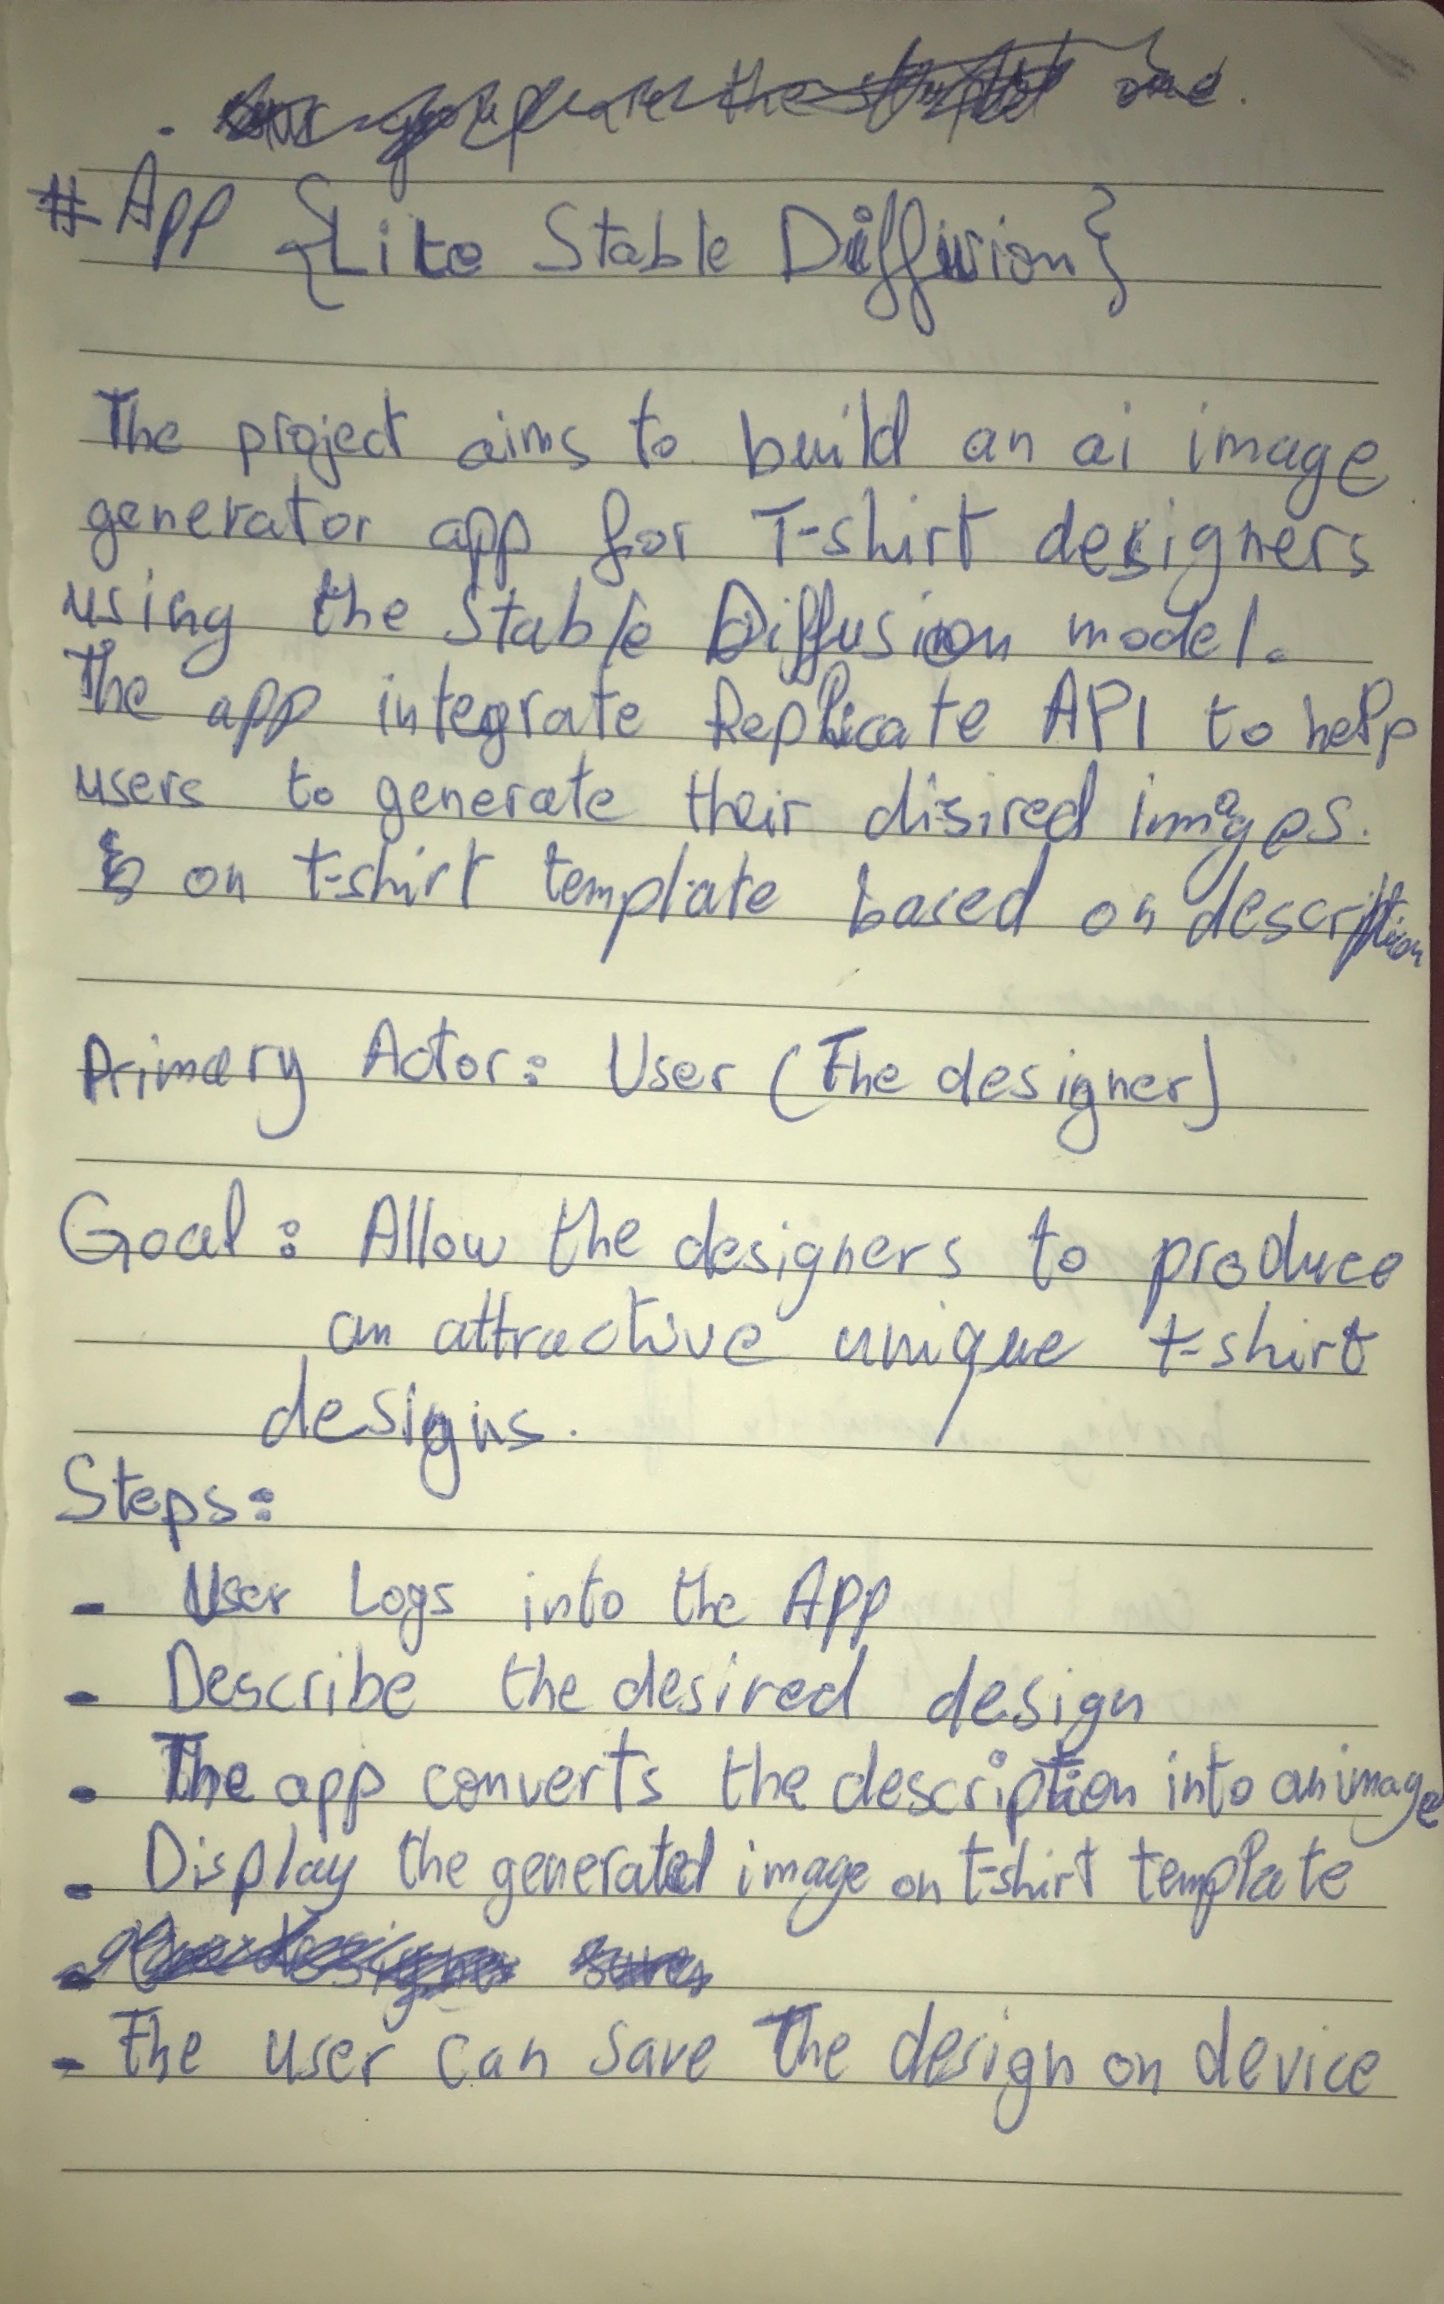 # App {Like Stable Diffusion}
The project aims to build an ai image
generator app for T-shirt designers
using the Stable Diffusion model.
The app integrate Replicate API to help
users to generate their disired images.
on t-shirt template based on description
Primary Actor: User (The designer)
Goal: Allow the designers to produce
an attractive unique t-shirt
designs.
Steps:
- User Logs into the App
- Describe the desired design
- The app converts the description into an image
- Display the generated image on t-shirt template
- The user can save The design on device